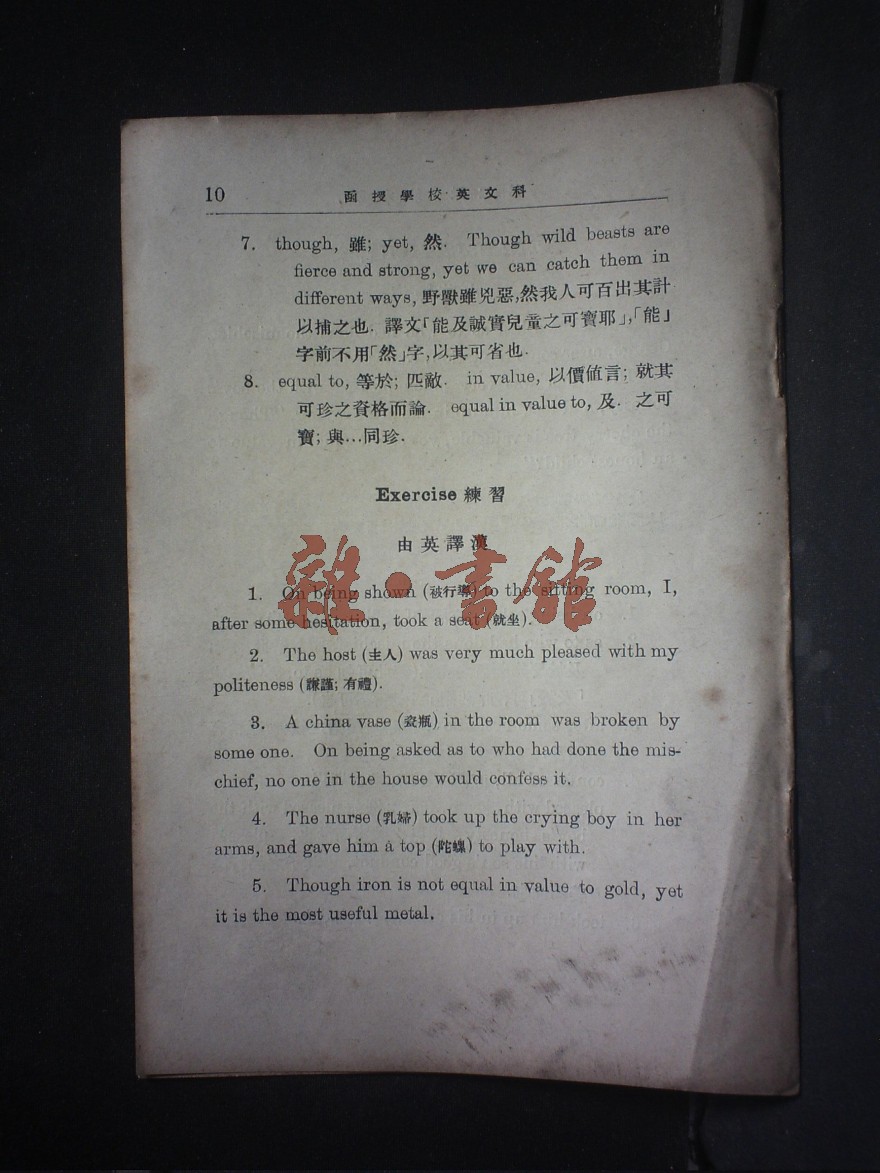 10 函授學校英文科
7. though, 雖; yet, 然. Though wild beasts are
fierce and strong, yet we can catch them in
different ways, 野獸雖兇惡,然我人可百出其計
以捕之也. 譯文「能及誠實兒童之可寶耶」,「能」
字前不用「然」字,以其可省也.
8. equal to, 等於; 匹敵. in value, 以價値言; 就其
可珍之資格而論. equal in value to, 及. 之可
寶; 與...同珍.
Exercise 練習
由英譯漢
雜·書館
1. On being shown (被行導) to the sitting room, I,
after some hesitation, took a seat (就坐).
2. The host (主人) was very much pleased with my
politeness (謙謹; 有禮).
3. A china vase (瓷瓶) in the room was broken by
some one. On being asked as to who had done the mis-
chief, no one in the house would confess it.
4. The nurse (乳婦) took up the crying boy in her
arms, and gave him a top (陀螺) to play with.
5. Though iron is not equal in value to gold, yet
it is the most useful metal.